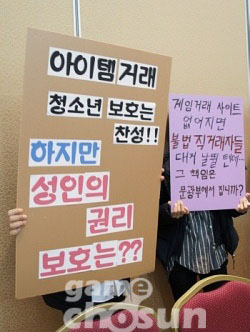 아이템거래
청소년 보호는
찬성!!
하지만
성인의
권리
보호는??
게임거래 사이트
없어지면
불법 직거래자들
대거 날뛸 텐데...
그 책임은
문광부에서 집니까?
game
chosun